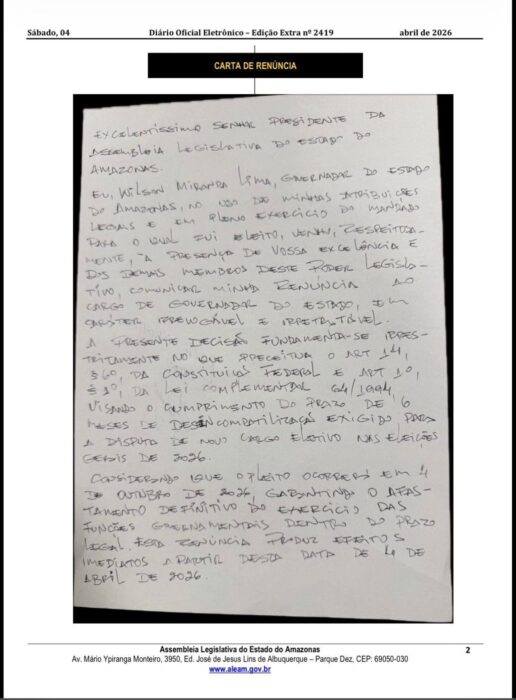 Sábado, 04 Diário Oficial Eletrônico – Edição Extra nº 2419 abril de 2026
CARTA DE RENÚNCIA
EXCELENTÍSSIMO SENHOR PRESIDENTE DA
ASSEMBLEIA LEGISLATIVA DO ESTADO DO
AMAZONAS.
EU, WILSON MIRANDA LIMA, GOVERNADOR DO ESTADO
DO AMAZONAS, NO USO DE MINHAS ATRIBUIÇÕES
LEGAIS E EM PLENO EXERCÍCIO DO MANDATO
PARA O QUAL FUI ELEITO, VENHO, RESPEITOSA-
MENTE, À PRESENÇA DE VOSSA EXCELÊNCIA E
DOS DEMAIS MEMBROS DESTE PODER LEGISLA-
TIVO, COMUNICAR MINHA RENÚNCIA AO
CARGO DE GOVERNADOR DO ESTADO, EM
CARÁTER IRREVOGÁVEL E IRRETRATÁVEL.
A PRESENTE DECISÃO FUNDAMENTA-SE IRRES-
TRITAMENTE NO QUE PRECEITUA O ART 14,
§ 6º, DA CONSTITUIÇÃO FEDERAL E ART 1º,
§ 1º, DA LEI COMPLEMENTAR 64/1994,
VISANDO O CUMPRIMENTO DO PRAZO DE 6
MESES DE DESINCOMPATILIZAÇÃO EXIGIDO PARA
A DISPUTA DE NOVO CARGO ELETIVO NAS ELEIÇÕES
GERAIS DE 2026.
CONSIDERANDO QUE O PLEITO OCORRERÁ EM 4
DE OUTUBRO DE 2026, GARANTINDO O AFAS-
TAMENTO DEFINITIVO DO EXERCÍCIO DAS
FUNÇÕES GOVERNAMENTAIS DENTRO DO PRAZO
LEGAL. ESTA RENÚNCIA PRODUZ EFEITOS
IMEDIATOS A PARTIR DESTA DATA DE 4 DE
ABRIL DE 2026.
Assembleia Legislativa do Estado do Amazonas 2
Av. Mário Ypiranga Monteiro, 3950, Ed. José de Jesus Lins de Albuquerque – Parque Dez, CEP: 69050-030
www.aleam.gov.br